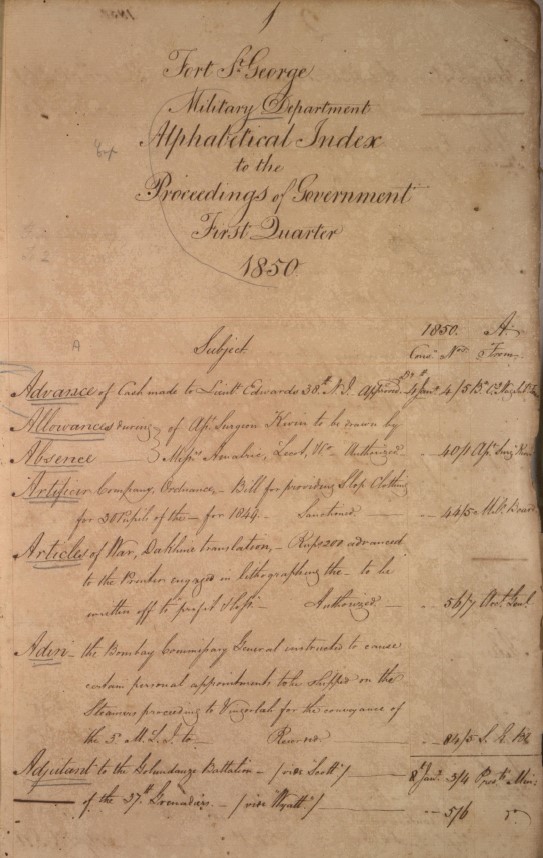 1
Fort St. George
Military Department
Alphabetical Index
to the
Proceedings of Government
First Quarter
1850.
A
1850. A.
Subject Cons. Nos. & From
Advance of Cash made to Lieutt. Edwards 38th N.I. Approved 4 Jany. 4/5
Allowances during of Apt. Surgeon to be drawn by
Absence } Messrs. Authorized 40/1
Artificer Company, Ordnance, Bill for providing Slop Clothing
for 30 Pupils of the for 1849. Sanctioned 44/5 Mily. Board
Articles of War, Dakhine translation, Rups. 200 advanced
to the Printer engaged in lithographing the to be
written off to profit & loss. Authorized 56/7 Acct. Genl.
Aden the Bombay Commissary General instructed to cause
certain personal appointments to be shipped on the
Steamers proceeding to Vingorlah for the conveyance of
the 5 M.L.I. to 84/5
Adjutant to the Golundauze Battalion (vide Scott) 8 Jany. 3/4
of the 37th Grenadiers. (vide Wyatt) 5/6